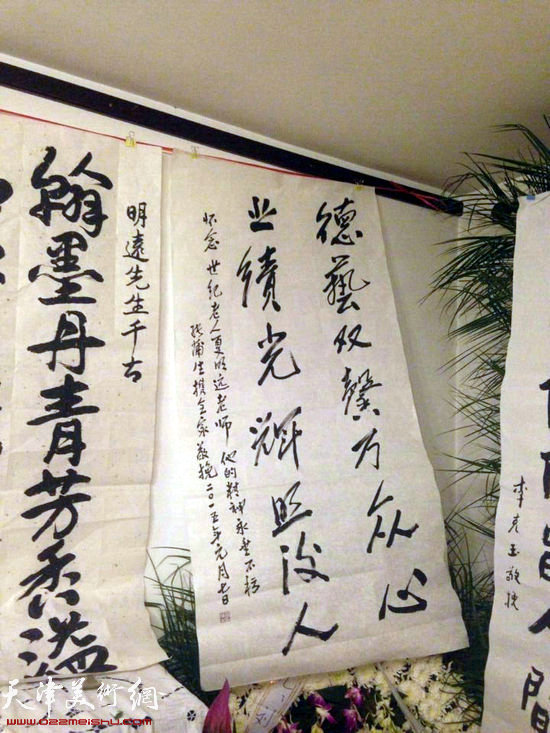 德藝双馨万众心
业績光辉照後人
怀念世纪老人夏明远老师 他的精神永垂不朽
张蒲生携全家敬挽二〇一五年元月七日
明遠先生千古
翰墨丹青芳香溢
李克玉敬挽
人間
天津美術網
www.022meishu.com